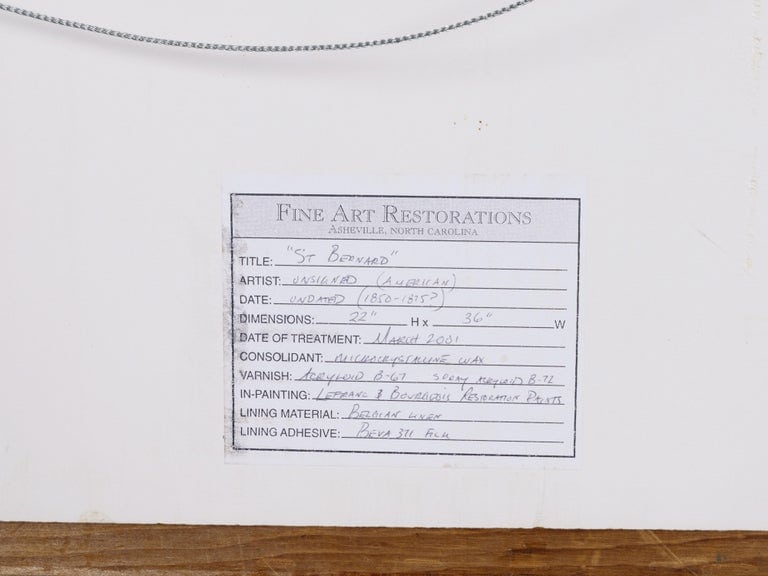 FINE ART RESTORATIONS
ASHEVILLE, NORTH CAROLINA
TITLE: "ST BERNARD"
ARTIST: UNSIGNED (AMERICAN)
DATE: UNDATED (1850-1875?)
DIMENSIONS: 22" H x 36" W
DATE OF TREATMENT: MARCH 2001
CONSOLIDANT: MICROCRYSTALLINE WAX
VARNISH: ACRYLOID B-67 SPRAY ACRYLOID B-72
IN-PAINTING: LEFRANC & BOURGEOIS RESTORATION PAINTS
LINING MATERIAL: BELGIAN LINEN
LINING ADHESIVE: BEVA 371 FILM